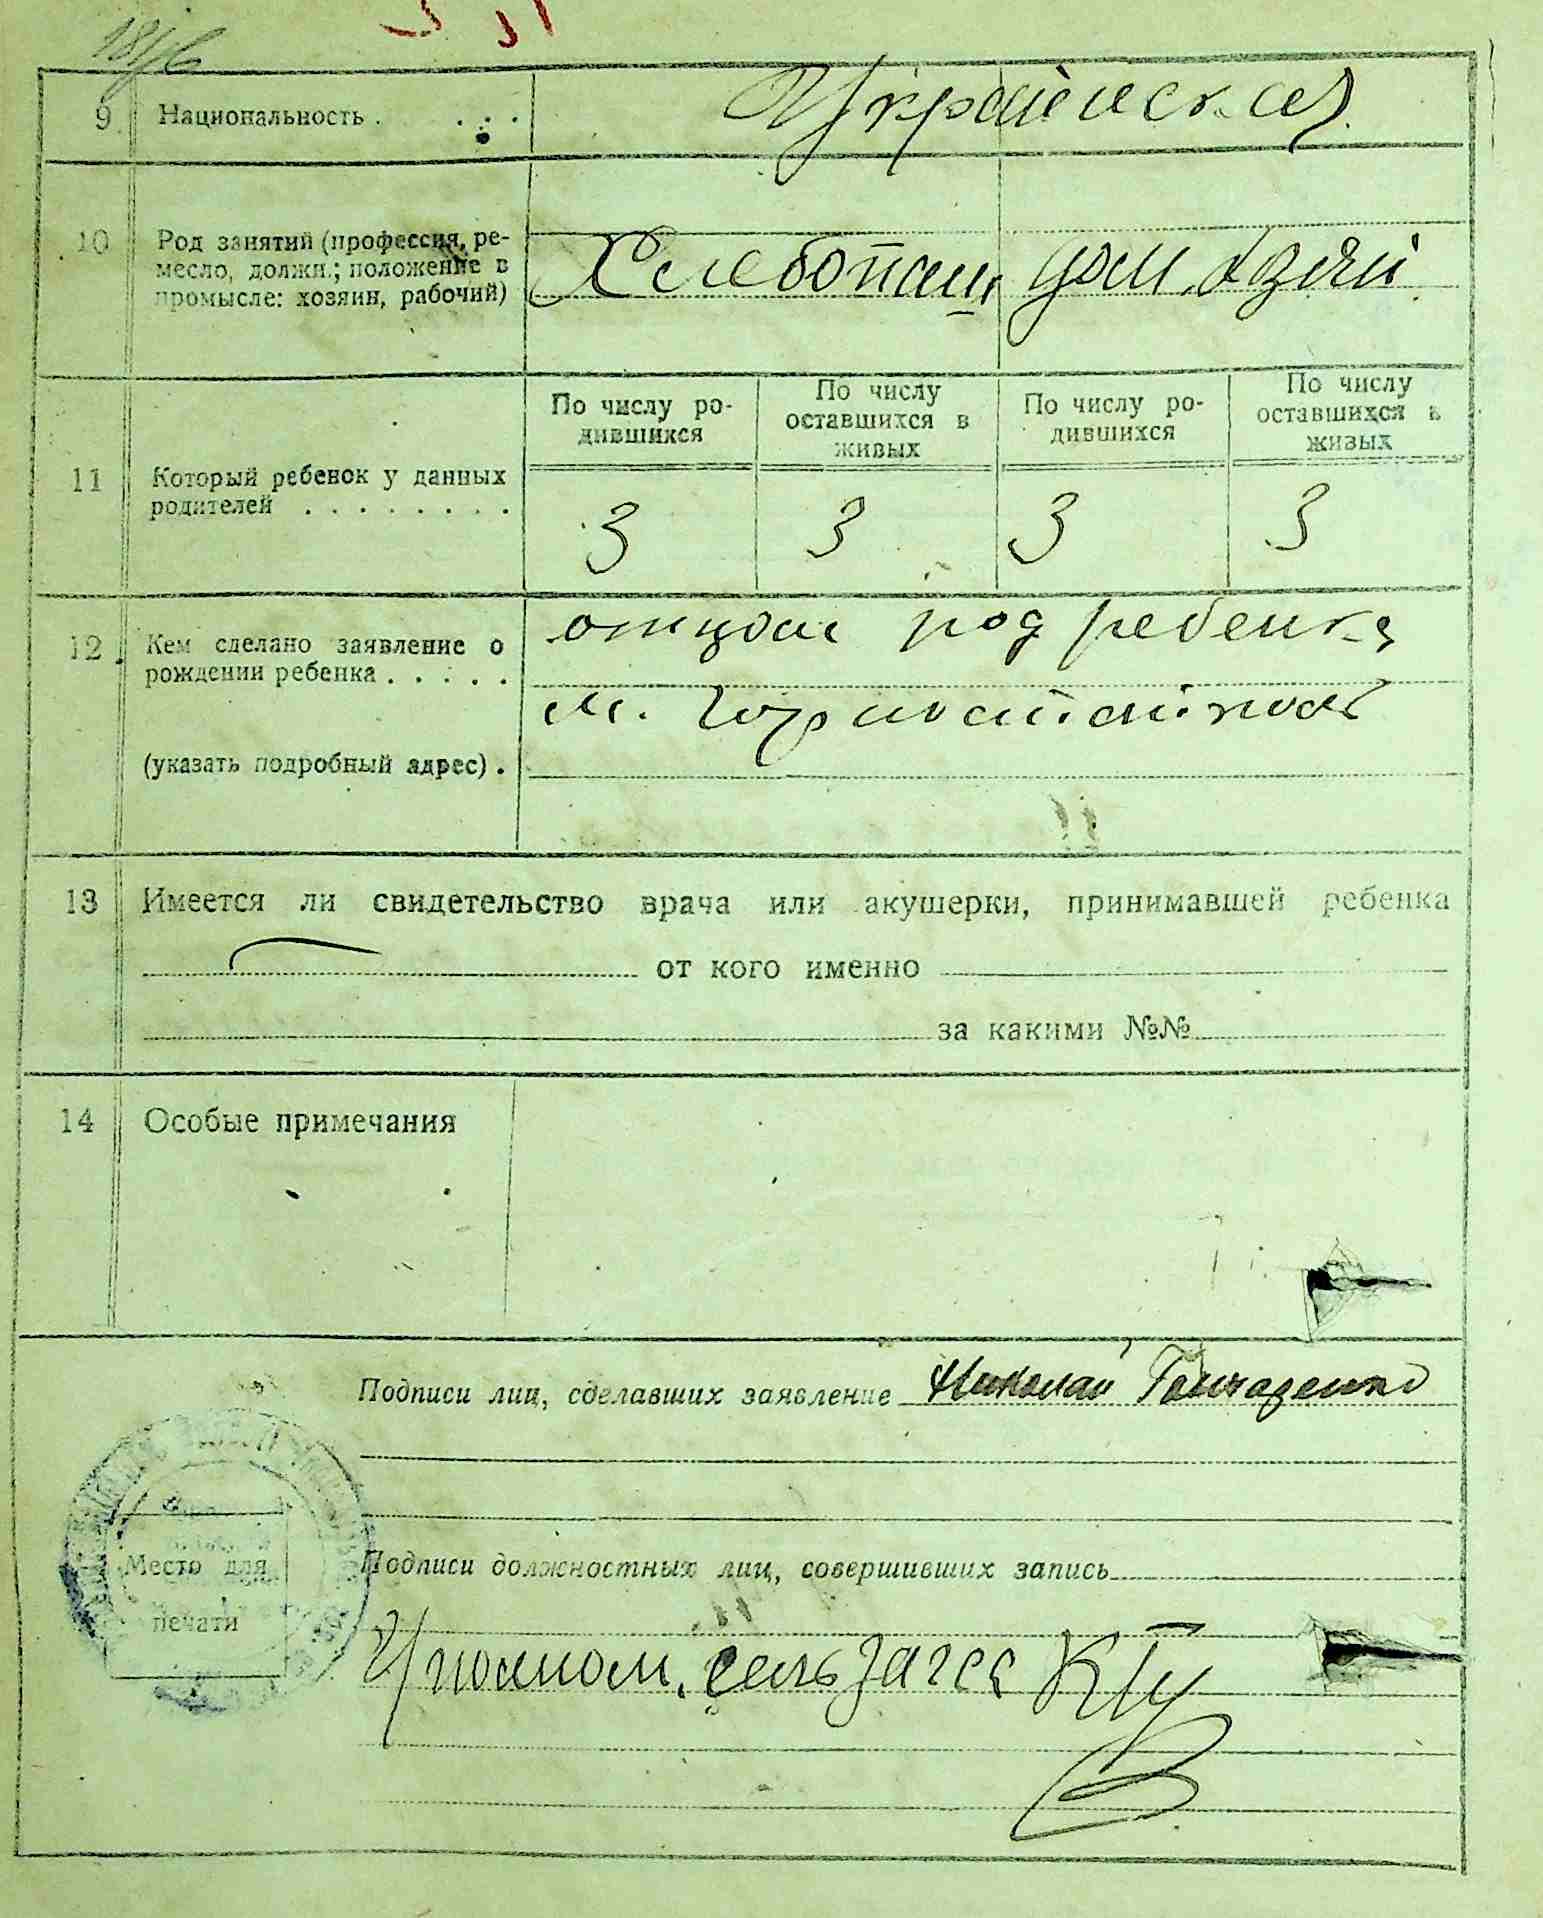 9 Национальность . . . . Украинская
10 Род занятий (профессия, ре-
месло, должн.; положение в
промысле: хозяин, рабочий)
Хлебопаш дом. хозяй
По числу ро-
дившихся
По числу
оставшихся в
живых
По числу ро-
дившихся
По числу
оставшихся в
живых
11 Который ребенок у данных
родителей . . . . . . . .
3 3 3 3
12 Кем сделано заявление о
рождении ребенка . . . . .
отцом род ребенка
м.
(указать подробный адрес) .
13 Имеется ли свидетельство врача или акушерки, принимавшей ребенка
от кого именно
за какими №№
14 Особые примечания
Подписи лиц, сделавших заявление Николай Гончаренко
Место для
печати
Подписи должностных лиц, совершивших запись
Уполном. сельзагса